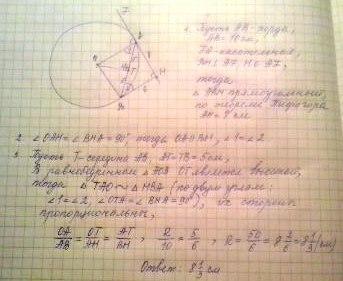 1. Пусть AB-хорда,
AB=10см,
TA-касательная,
BH ⊥ AT, H∈AT,
тогда
△ ABH прямоугольный,
по теореме Пифагора
AH = 8 см
2. ∠OAH=∠BHA=90°, тогда OA∥BH, ∠1=∠2
3. Пусть T-середина AB, AT=TB=5см,
В равнобедренном △AOB OT является высотой,
тогда △TAO∼△HBA (по двум углам:
∠1=∠2, ∠OTA=∠BHA=90°), их стороны
пропорциональны,
OA/AB = OT/AH = AT/BH, R/10 = 5/6, R = 50/6 = 8 2/6 = 8 1/3 (см)
Ответ: 8 1/3 см